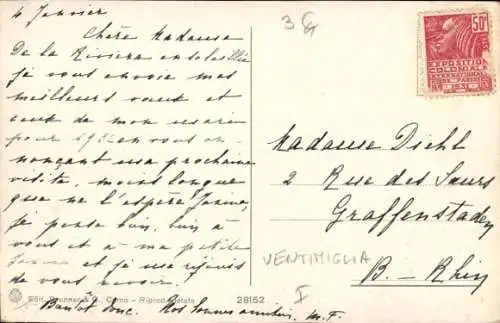 4 Janvier
Chère Madame
De la Riviera ensoleillée
je vous envoie mes
meilleurs vœux et
ceux de mon mari
pour 1932 en vous an-
nonçant ma prochaine
visite, moins longue
que ne l'espère Jeanne,
je pense bien, bien à
vous et à ma petite
et je me réjouis
de vous revoir.
Bientôt donc. Nos bonnes amitiés. M. F.
Edit. Brunner & C., Como - Riprod. vietata
28152
3
50c
EXPOSITION
COLONIALE
INTERNATIONALE
PARIS
1931
Madame Diehl
2 Rue des Sœurs
Graffenstaden
VENTIMIGLIA
B.-Rhin
I